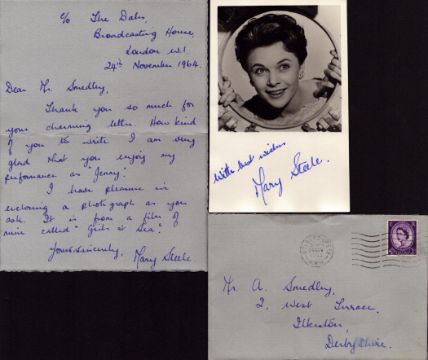 c/o The Dales,
Broadcasting House,
London W.1.
24th November 1964.
Dear Mr. Smedley,
Thank you so much for
your charming letter. How kind
of you to write. I am very
glad that you enjoy my
performance as Jenny.
I have pleasure in
enclosing a photograph as you
ask. It is from a film of
mine called "Girls at Sea".
Yours sincerely,
Mary Steele
With best wishes
Mary Steele.
Mr. A. Smedley,
2, West Terrace,
Ilkeston,
Derbyshire.